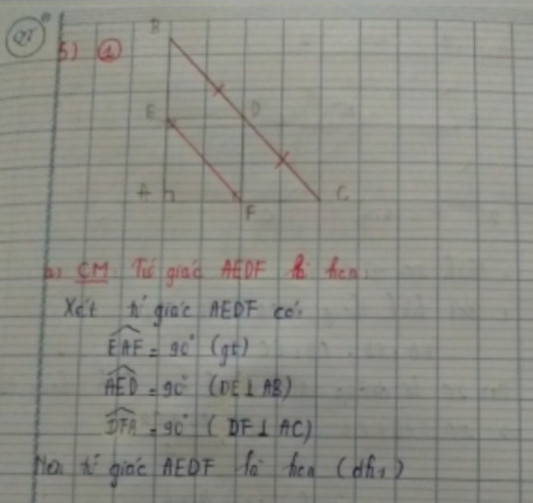 5) 1
B
E D
A F C
a, CM Tứ giác AEDF là hcn.
Xét tứ giác AEDF có:
EAF = 90° (gt)
AED = 90° (DE ⊥ AB)
DFA = 90° (DF ⊥ AC)
Nên tứ giác AEDF là hcn (dh1)